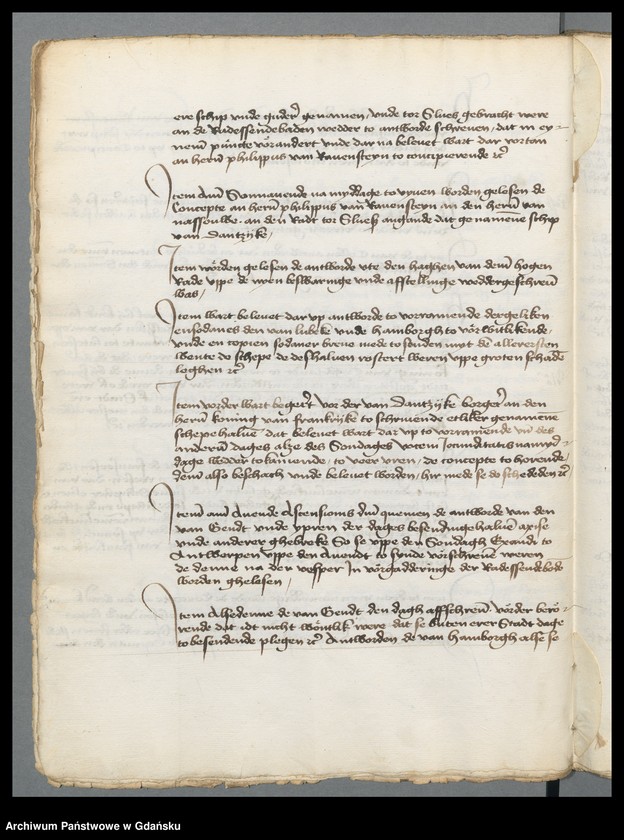 ere schip vnde guder genamen, vnde tor Slues gebracht were
an de Radessendebaden wedder to antworde schreuen, dat in ey-
nem puncte vorandert vnde dar na beleuet wart dar vortan
an hern philippus van Rauensteyn to concipierende rc
Item Am Sonnauende na myddage to vyuen worden gelesen de
Concepte an hern philippus van Rauensteyn an den hern van
nassouwe an den Radt tor Slues angande dat genamene schip
van Dantzyke,
Item worden gelesen de antworde vte den haghen van dem hogen
Rade vppe de nyen beswaringe vnde affstellinge weddergeschreuen
was,
Item wart beleuet dar vp antworde to vorramende dergeliken
ensodanes den van lubeke vnde hamborgh to vorwitlikende,
vnde en copien sodaner breue mede to senden mit den allerersten
wente de schepe de deshaluen rostert weren vppe groten schaden
leghen rc
Item vorder wart begert vor der van Dantzyke borger an den
hern koning van franckryke to schriuende etliker genamene
schepe haluen dat beleuet wart dar vp to vorramende vnde des
anderen dages alze des Sondages vocem Jocunditatis namyd-
dage wedder to kamende, to veer vren, de concepte to horende,
dem also beschach vnde beleuet worden, hir mede se do schededen rc
Item am Auende Ascensionis domini quemen de antworde van den
van Gendt vnde ypren der dages besendinge haluen
vnde anderer ghebreke So se vppe den Sondagh Exaudi to
Antwerpen vppe den Auendt to synde vorschreuen weren
de denne na der vesper In vorgadderinge der Radessendebaden
worden ghelesen,
Item Alsedenne de van Gendt den dagh affschreuen vorder bero-
rende dat idt nicht wontlik were dat se buten erer Stadt dage
to besendende plegen rc Antworden de van hamborgh alse se
Archiwum Państwowe w Gdańsku